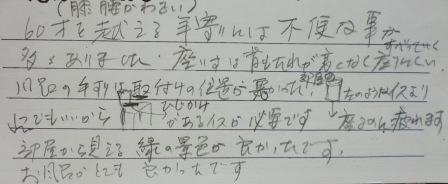 (膝腰がわるい)
60才を越える年寄りには不便な事が
多々ありました。座いすは背もたれが高くなく座りにくい
すべってにくく
風呂の手すりは取付けの位置が悪かった。
左のようなイスより
どこでもいいから ひじかけ がある イスが必要です
座るのに疲れます
部屋から見える緑の景色が良かったです。
お風呂がとても良かったです